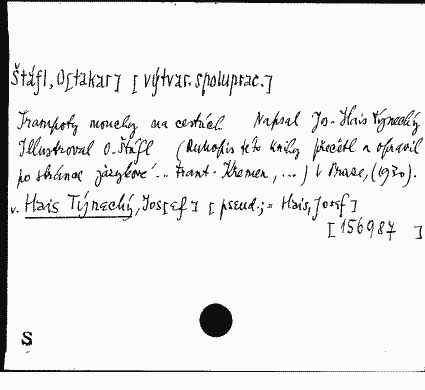 Štáfl, O[takar] [výtvar. spoluprac.]
Trampoty mouchy na cestách Napsal Jos. Hais Týnecký
Illustroval O. Štáfl (Rukopis této knihy přečetl a opravil
po stránce jazykové ... Frant. Křemen, ...) V Praze, (1930).
v. Hais Týnecký, Jos[ef] [pseud.; = Hais, Josef]
[156987]
S